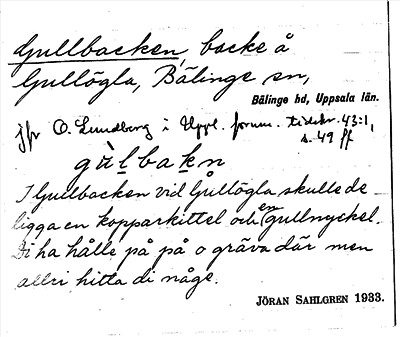 Gullbacken, backe å
Gullögla, Bälinge sn,
Bälinge hd, Uppsala län.
jfr O. Lundberg i Uppl. fornm. tidskr. 43:1,
s. 49 ff
gùlbakn
I Gullbacken vid Gullögla skulle de
ligga en kopparkittel och en gullnyckel.
Di ha hålle på på o gräva där men
allri hitta di någe.
JÖRAN SAHLGREN 1933.